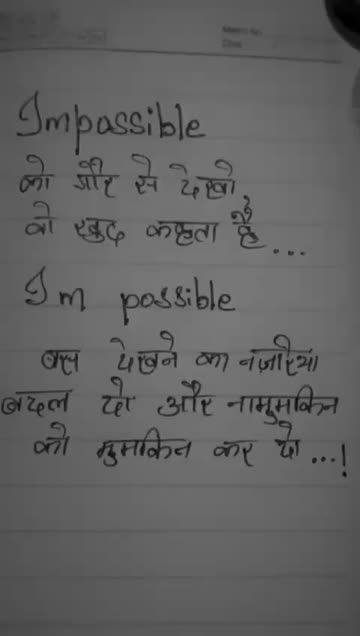 Impossible
को गौर से देखो,
वो खुद कहता है...
Im possible
बस देखने का नज़रिया
बदल दो और नामुमकिन
को मुमकिन कर दो ...!